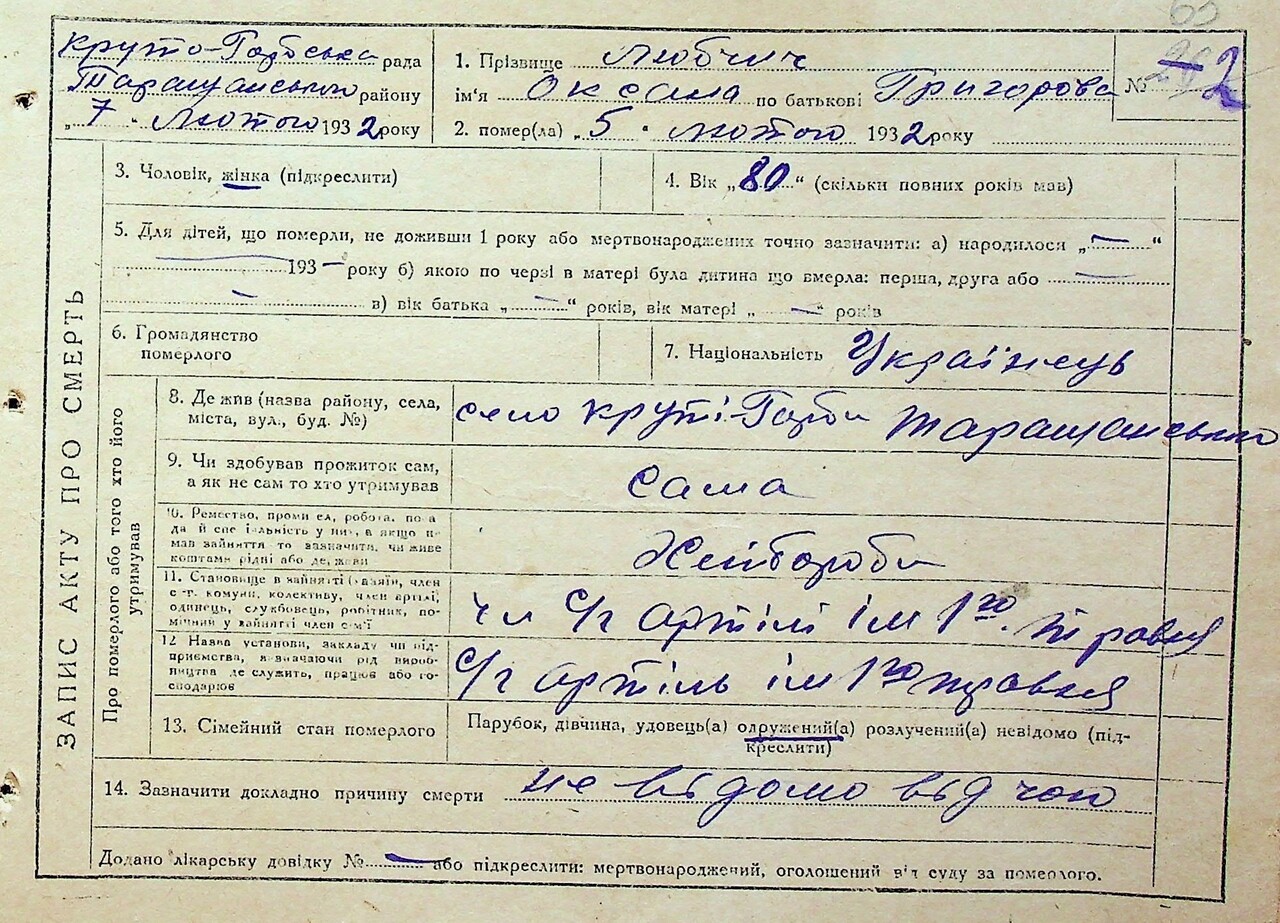 Круто-Горбська рада
Таращанського району
„7“ Лютого 1932 року
1. Прізвище Любчич
ім'я Оксана по батькові Григорова
2. помер(ла) „5“ лютого 1932 року
№ 2
ЗАПИС АКТУ ПРО СМЕРТЬ
3. Чоловік, жінка (підкреслити)
4. Вік „80“ (скільки повних років мав)
5. Для дітей, що померли, не доживши 1 року або мертвонароджених точно зазначити: а) народилося „—“
193— року б) якою по черзі в матері була дитина що вмерла: перша, друга або —
— в) вік батька „—“ років, вік матері „—“ років
6. Громадянство
померлого
7. Національність Українець
Про померлого або того хто його
утримував
8. Де жив (назва району, села,
міста, вул., буд. №)
село Круті-Горби Таращанського
9. Чи здобував прожиток сам,
а як не сам то хто утримував
сама
10. Ремество, промисел, робота, поса
да й спеціальність у них, а якщо не
мав зайняття то зазначити, чи живе
коштами рідні або держави
Хлібороби
11. Становище в зайнятті (хазяїн, член
с.-г. комуни, колективу, член артілі,
одинець, службовець, робітник, по-
мічний у зайнятті член сім'ї
чл с/г артілі ім 1го травня
12 Назва установи, закладу чи під-
приємства, зазначаючи рід вироб-
ництва де служить, працює або го-
сподарює
с/г артіль ім 1го травня
13. Сімейний стан померлого
Парубок, дівчина, удовець(а) одружений(а) розлучений(а) невідомо (під-
креслити)
14. Зазначити докладно причину смерти не відомо від чого
Додано лікарську довідку № — або підкреслити: мертвонароджений, оголошений від суду за померлого.